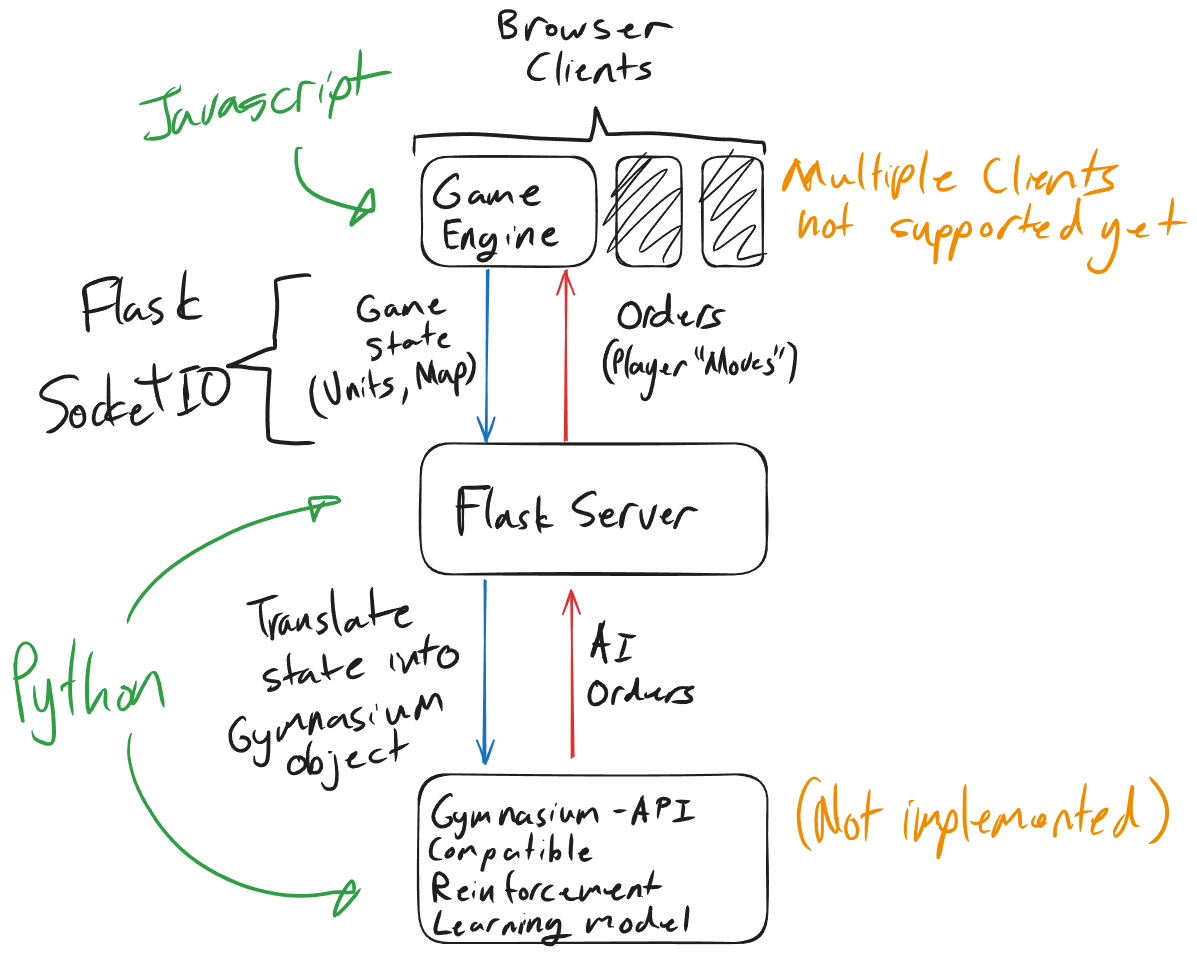 Browser
Clients
Javascript
Game
Engine
Multiple Clients
not supported yet
Flask
SocketIO
Game
State
(Units, Map)
Orders
(Player "Moves")
Flask Server
Python
Translate
state into
Gymnasium
object
AI
Orders
Gymnasium-API
Compatible
Reinforcement
Learning model
(Not implemented)